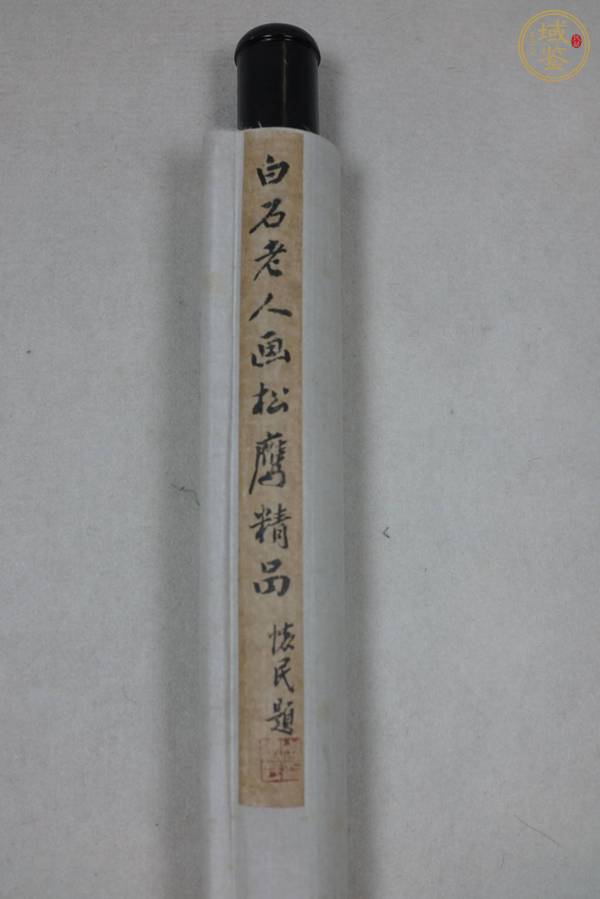 白石老人画松鹰精品
怀民题
域鉴